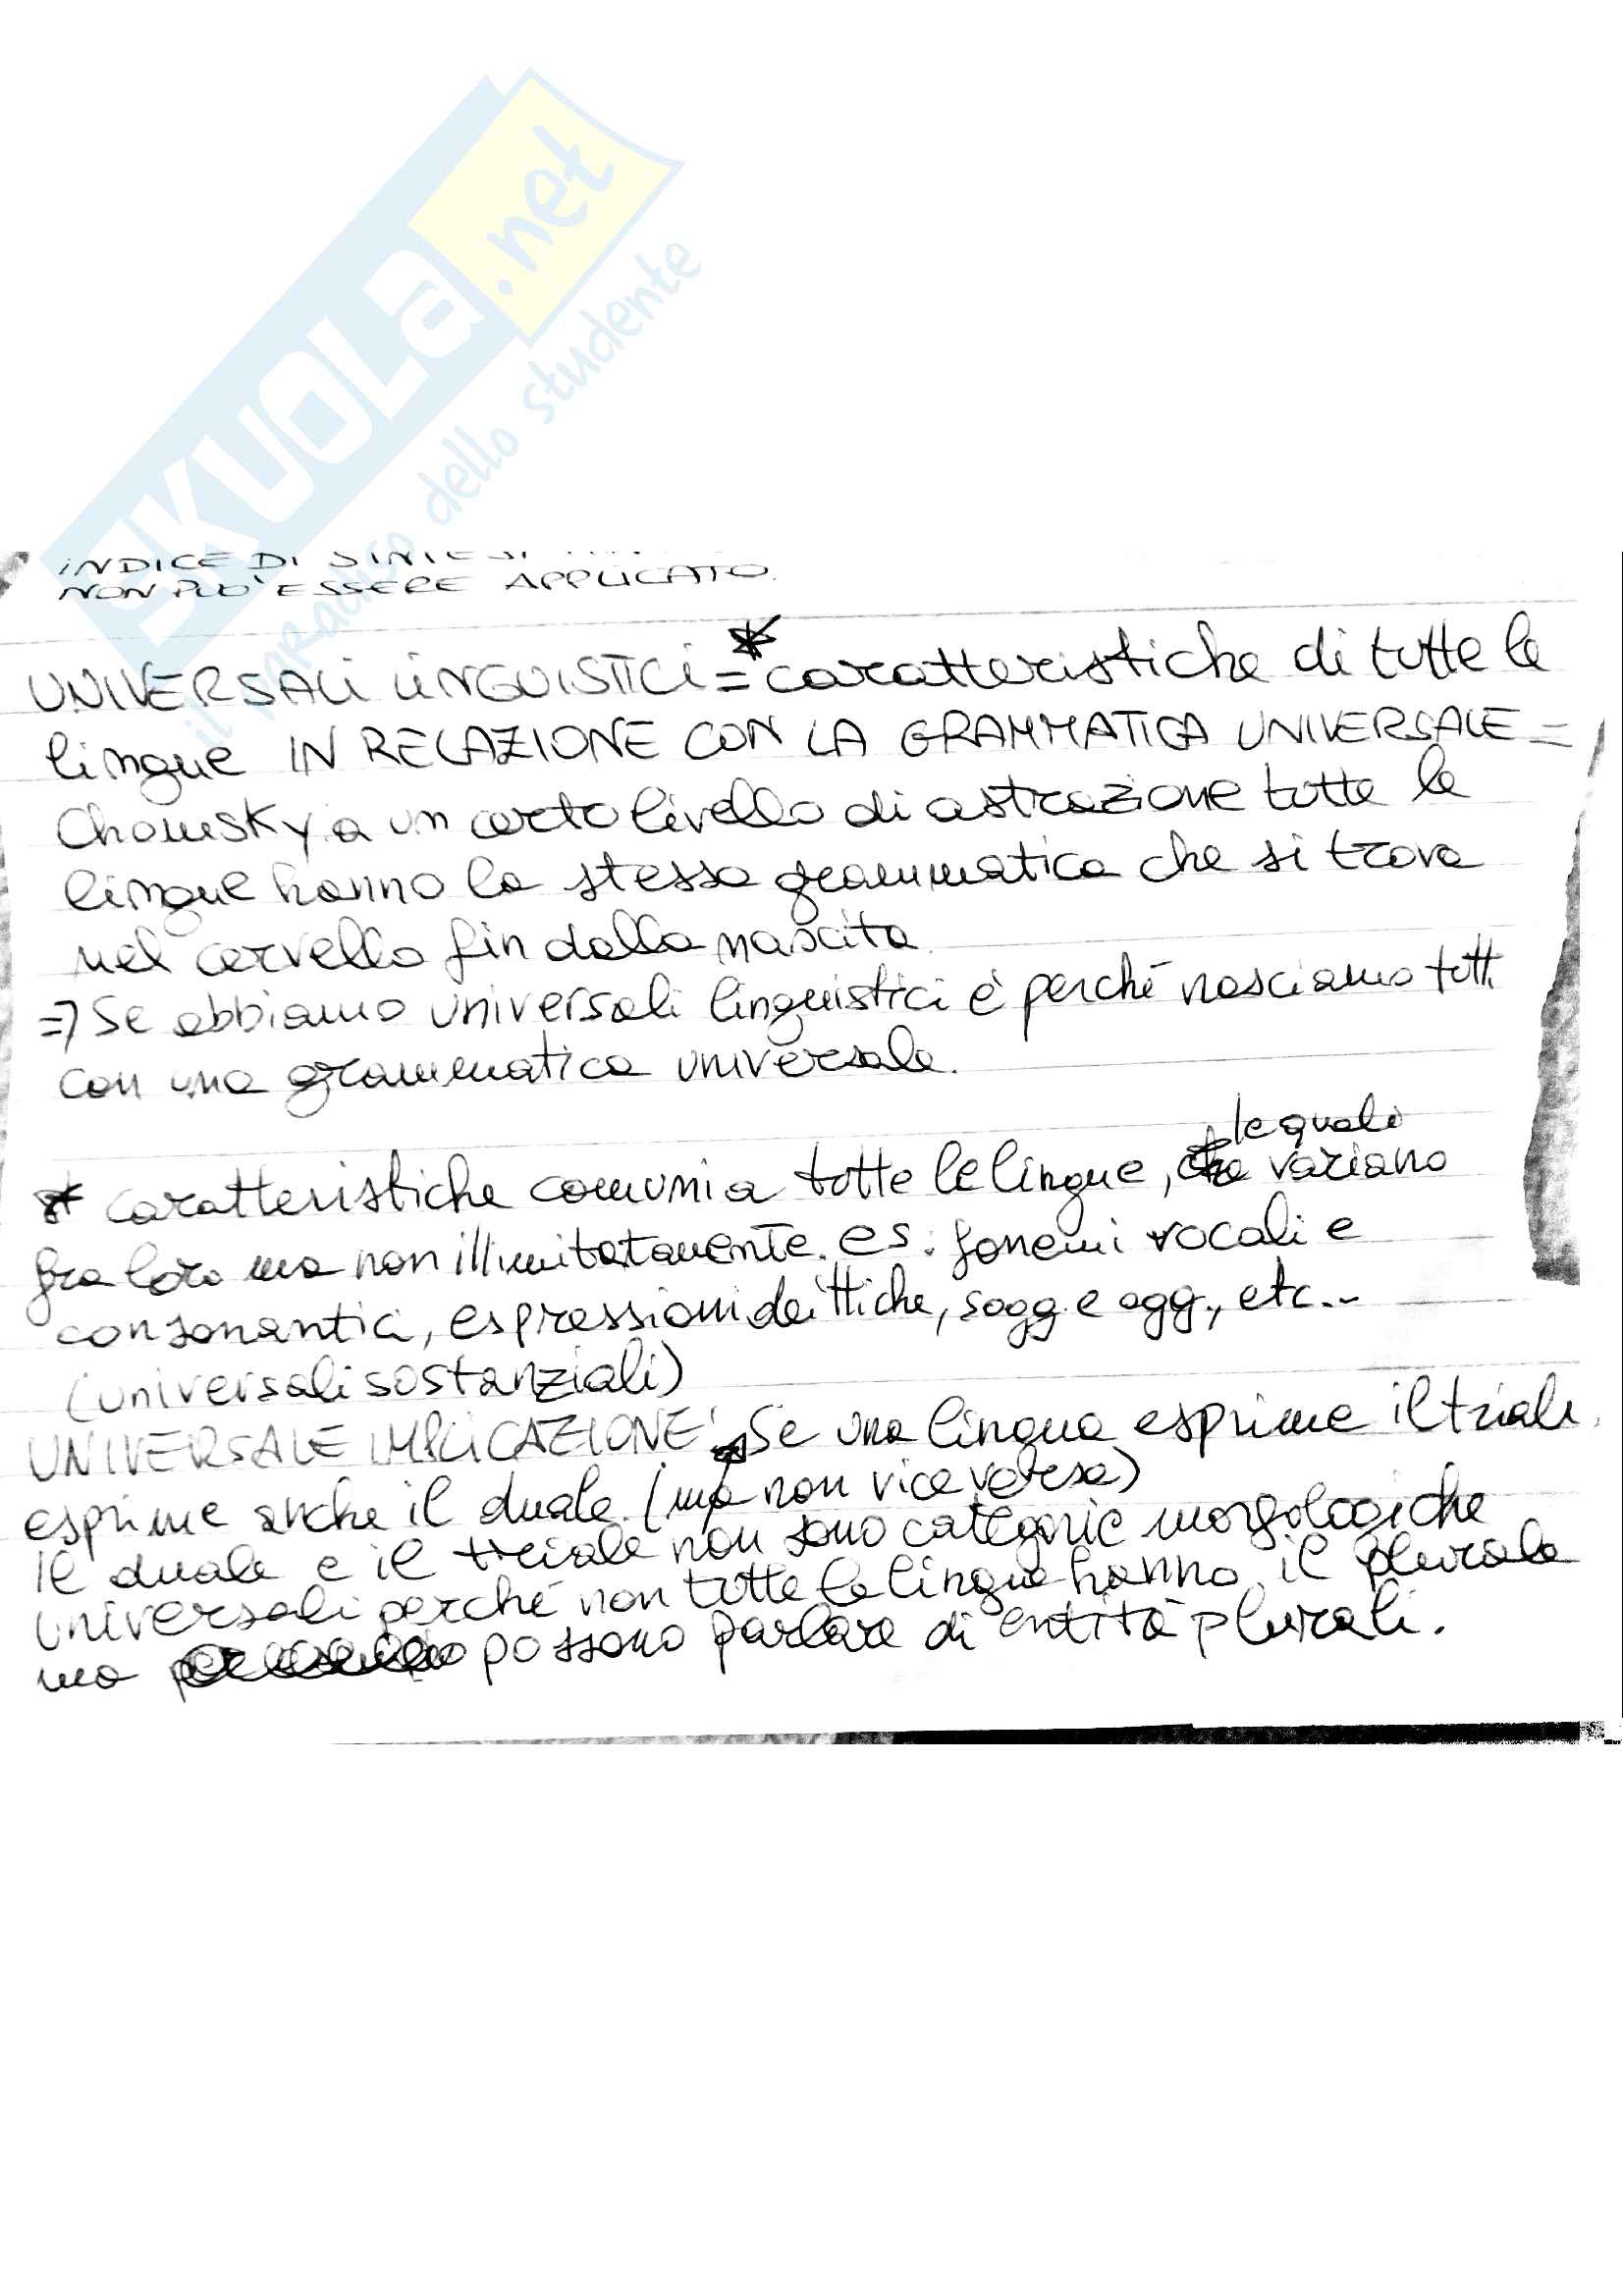 SKUOLa.net
il paradiso dello studente
INDICE DI SINTESI
NON PUO' ESSERE APPLICATO.
UNIVERSALI LINGUISTICI =* caratteristiche di tutte le
lingue IN RELAZIONE CON LA GRAMMATICA UNIVERSALE =
Chomsky a un certo livello di astrazione tutte le
lingue hanno la stessa grammatica che si trova
nel cervello fin dalla nascita.
=> Se abbiamo universali linguistici è perché nasciamo tutti
con una grammatica universale.
le quali
* caratteristiche comuni a tutte le lingue, variano
fra loro ma non illimitatamente. es: fonemi vocali e
consonantici, espressioni deittiche, sogg. e ogg., etc..
(universali sostanziali)
UNIVERSALE IMPLICAZIONE: Se una lingua esprime il triale,
esprime anche il duale. (ma non viceversa)
Il duale e il triale non sono categorie morfologiche
universali perché non tutte le lingue hanno il plurale
ma possono parlare di entità plurali.